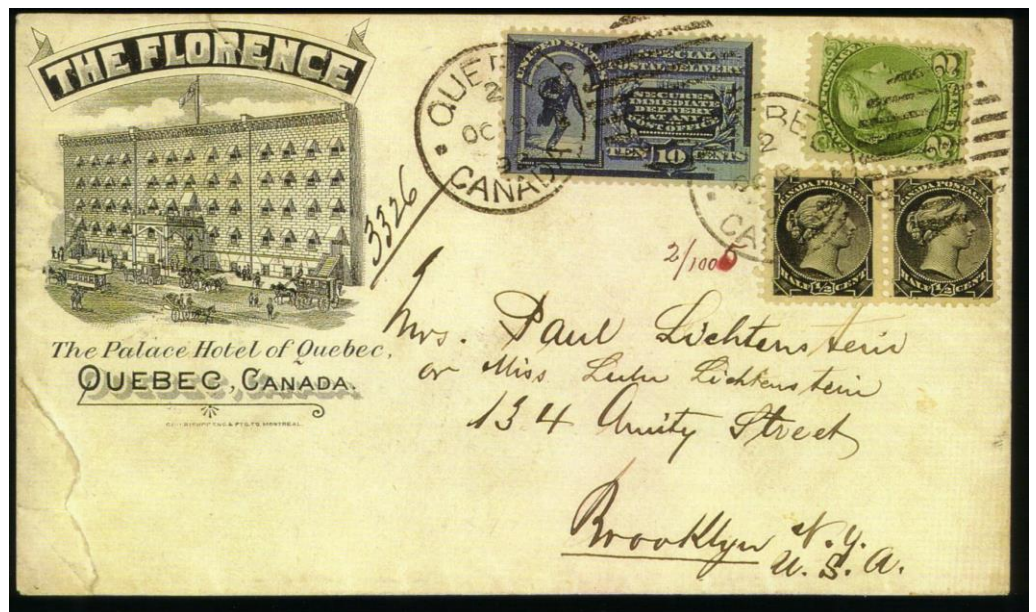 THE FLORENCE
The Palace Hotel of Quebec,
QUEBEC, CANADA.
UNITED STATES
SPECIAL
POSTAL DELIVERY
SECURES
IMMEDIATE
DELIVERY
AT ANY
POST OFFICE
TEN 10 CENTS
QUEBEC
2
OC
CANADA
2
2
CANADA POSTAGE
HALF ½ CENT
CANADA POSTAGE
HALF ½ CENT
3326
2/1005
Mrs. Paul Lichtenstein
or Miss Lulu Lichtenstein
134 Amity Street
Brooklyn N.Y.
U.S.A.